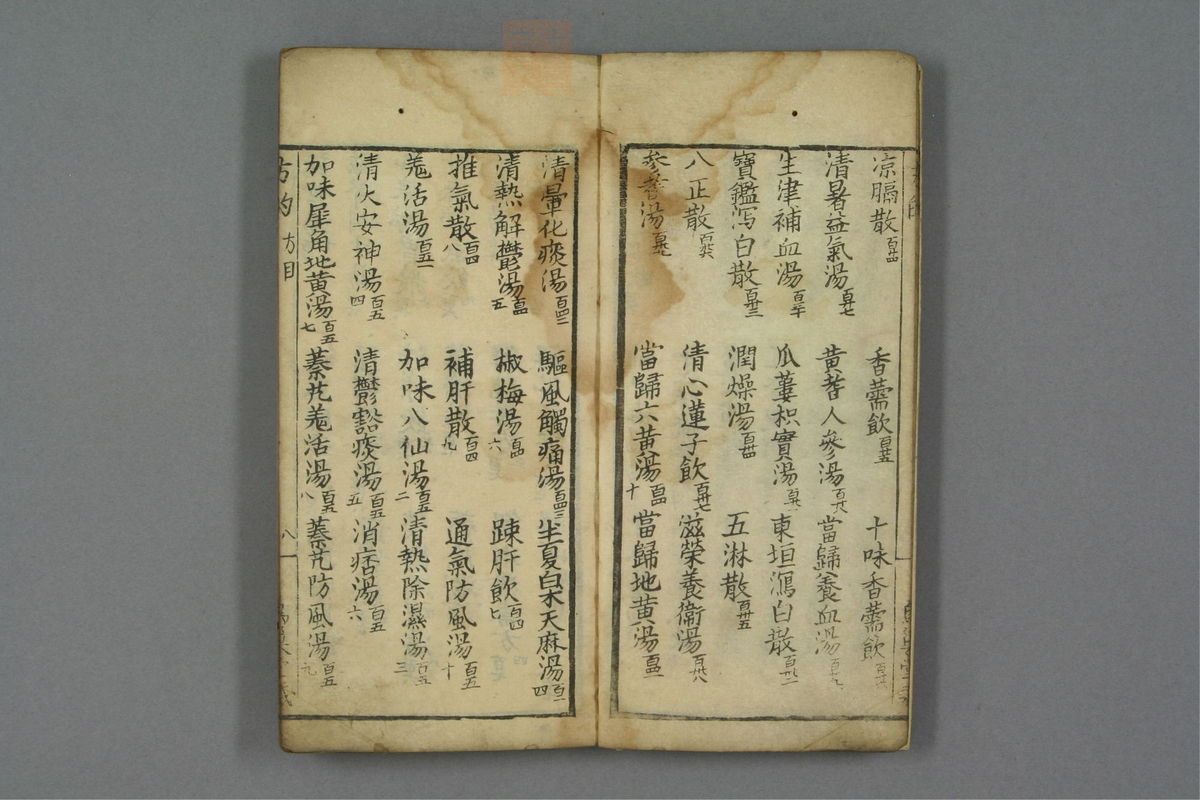 凉膈散 百十四 香薷飲 百十五 十味香薷飲
清暑益氣湯 百十七 黄芪人參湯 百十八 當歸養血湯 百十九
生津補血湯 百二十 瓜蔞枳實湯 東垣瀉白散
寶鑑瀉白散 潤燥湯 五淋散 百卅五
八正散 百卅六 清心蓮子飲 百卅七 滋榮養衞湯 百卅八
參芪湯 當歸六黄湯 百四十 當歸地黄湯 百四一
清暈化痰湯 百四二 驅風觸痛湯 百四三 半夏白朮天麻湯 百四四
清熱解鬱湯 百四五 椒梅湯 百四六 踈肝飲 百四七
推氣散 百四八 補肝散 百四九 通氣防風湯 百五十
羗活湯 百五一 加味八仙湯 百五二 清熱除濕湯 百五三
清火安神湯 百五四 清鬱豁痰湯 百五五 消痞湯 百五六
加味犀角地黄湯 百五七 蓁艽羗活湯 百五八 蓁艽防風湯 百五九
方彀 方目 八